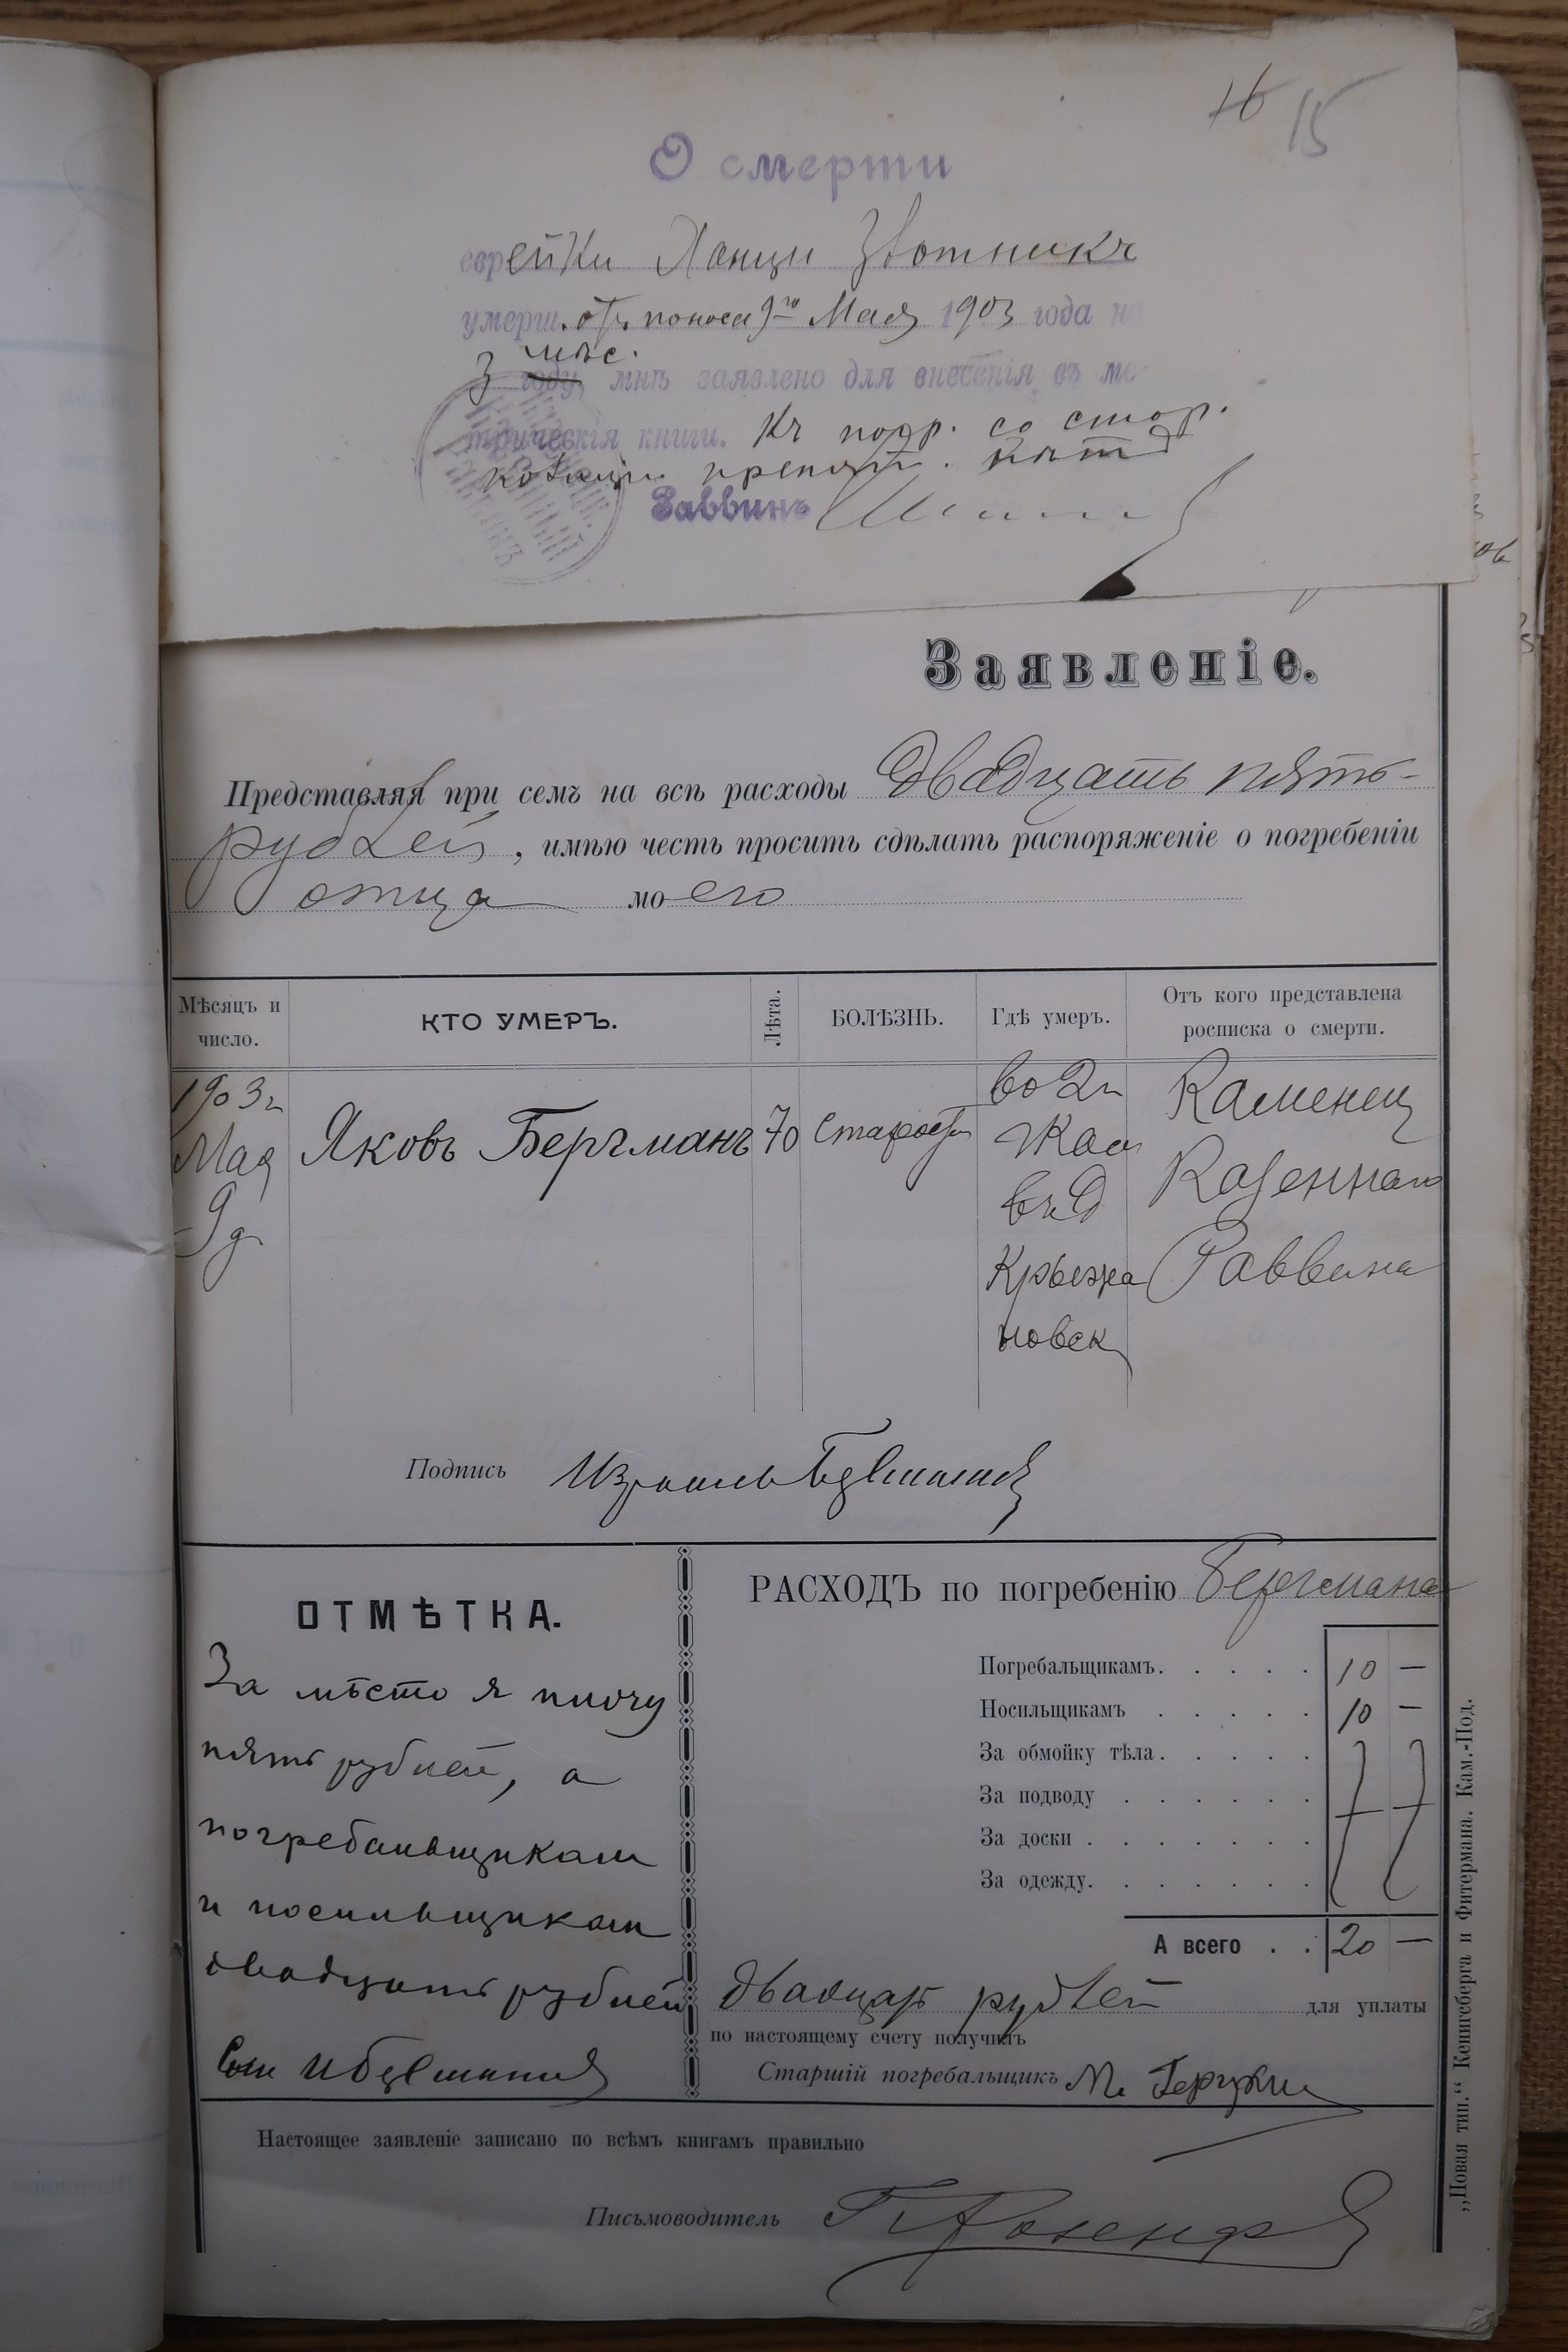 16 15
О смерти
еврейки Ханци Зютникъ
умерш. отъ поноса 9го Мая 1903 года на
3 мѣс. году, мнѣ заявлено для внесенія въ ме-
трическія книги. Къ погр. со стор.
полиціи препятс. нѣтъ
Раввинъ
Заявленіе.
Представляя при семъ на всѣ расходы двадцать пять
рублей, имѣю честь просить сдѣлать распоряженіе о погребеніи
отца моего
Мѣсяцъ и число.
КТО УМЕРЪ.
Лѣта.
БОЛѢЗНЬ.
Гдѣ умеръ.
Отъ кого представлена росписка о смерти.
1903 г
Мая
9 д
Яковъ Бергманъ
70
Старость
во 2 ч
въ д
Крыжа
новск
Каменец
Казеннаго
Раввина
Подпись Израиль Бергманъ
ОТМѢТКА.
За мѣсто я плочу
пять рублей, а
погребальщикам
и носильщикам
двадцать рублей
РАСХОДЪ по погребенію Бергмана
Погребальщикамъ. 10 —
Носильщикамъ 10 —
За обмойку тѣла.
За подводу
За доски
За одежду.
А всего 20 —
двадцать рублей для уплаты
по настоящему счету получилъ
Старшій погребальщикъ М.
Настоящее заявленіе записано по всѣмъ книгамъ правильно
Письмоводитель
„Новая тип.“ Кенигсберга и Фитермана. Кам.-Под.